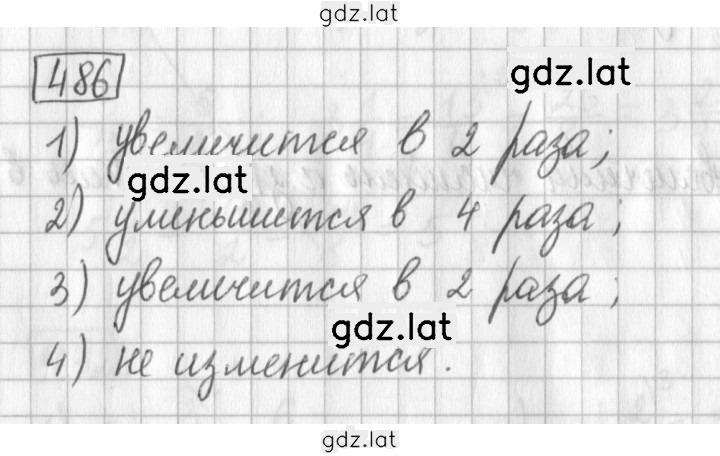 gdz.lat
486
gdz.lat
1) увеличится в 2 раза;
gdz.lat
2) уменьшится в 4 раза;
3) увеличится в 2 раза;
gdz.lat
4) не изменится.
gdz.lat